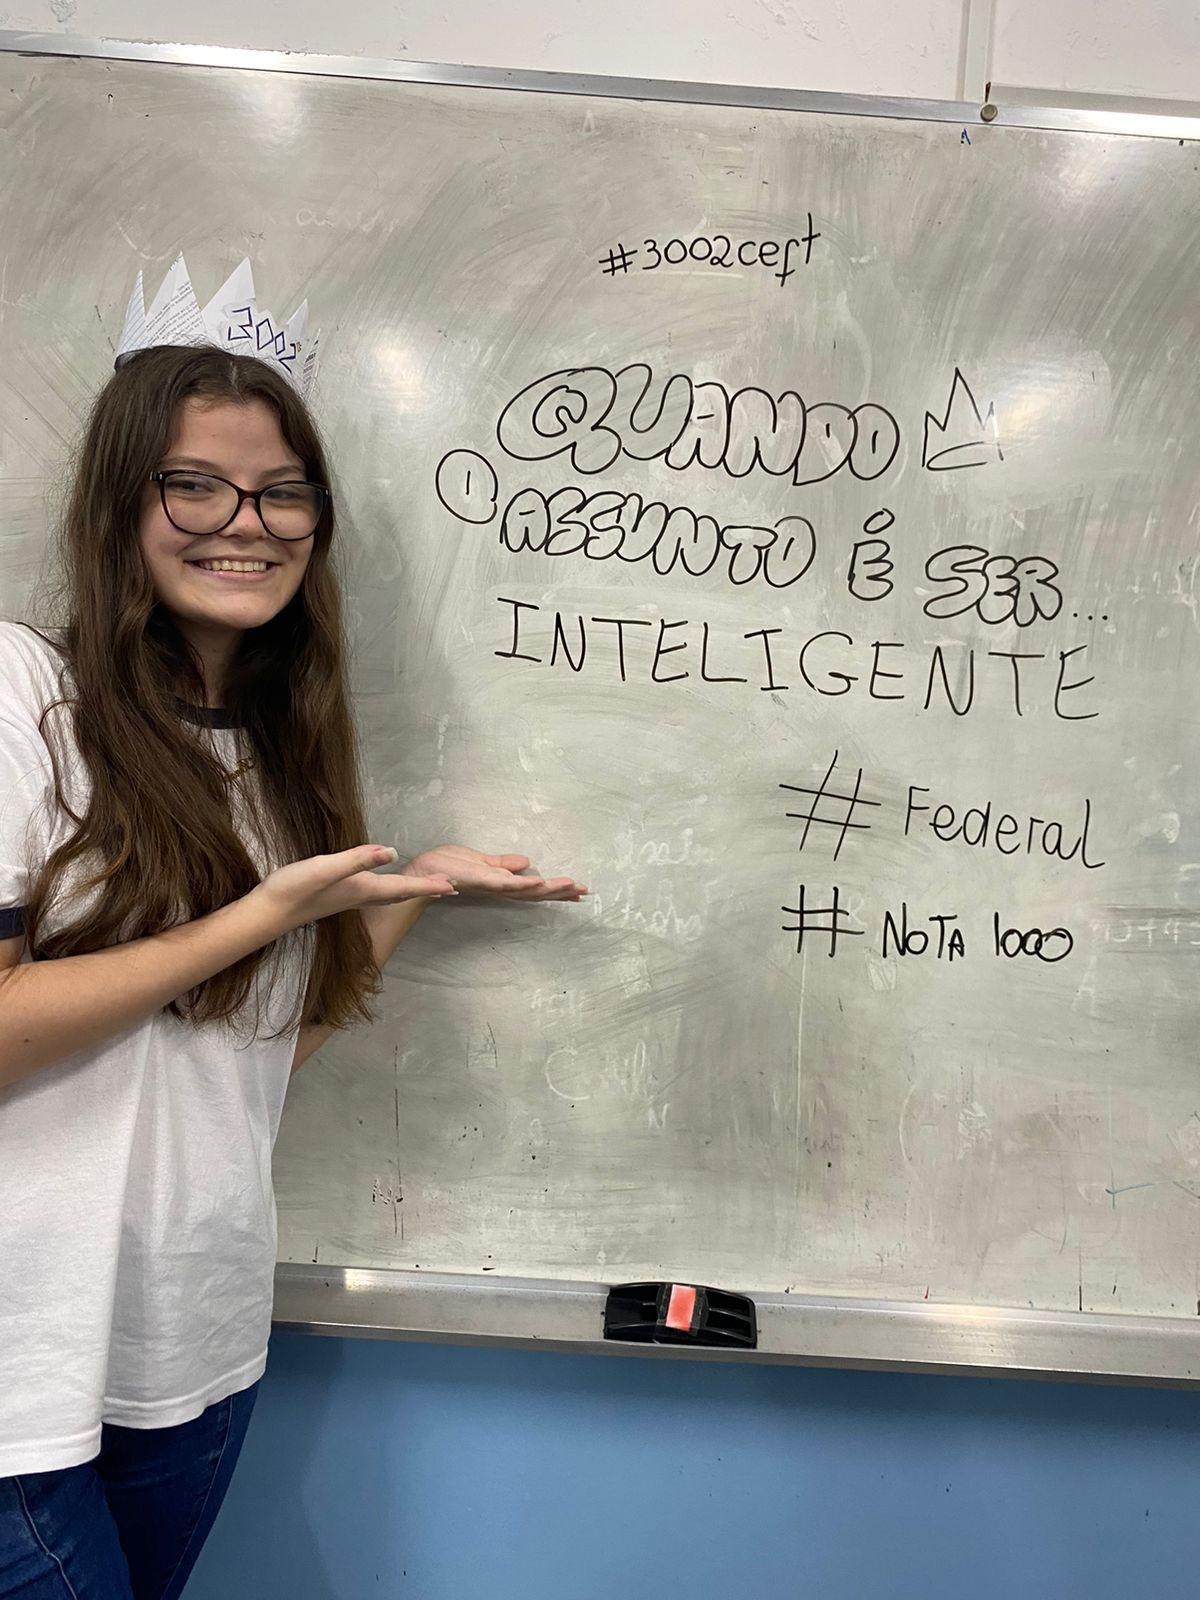 #3002ceft
QUANDO
O ASSUNTO É SER...
INTELIGENTE
# Federal
# NOTA 1000
3002